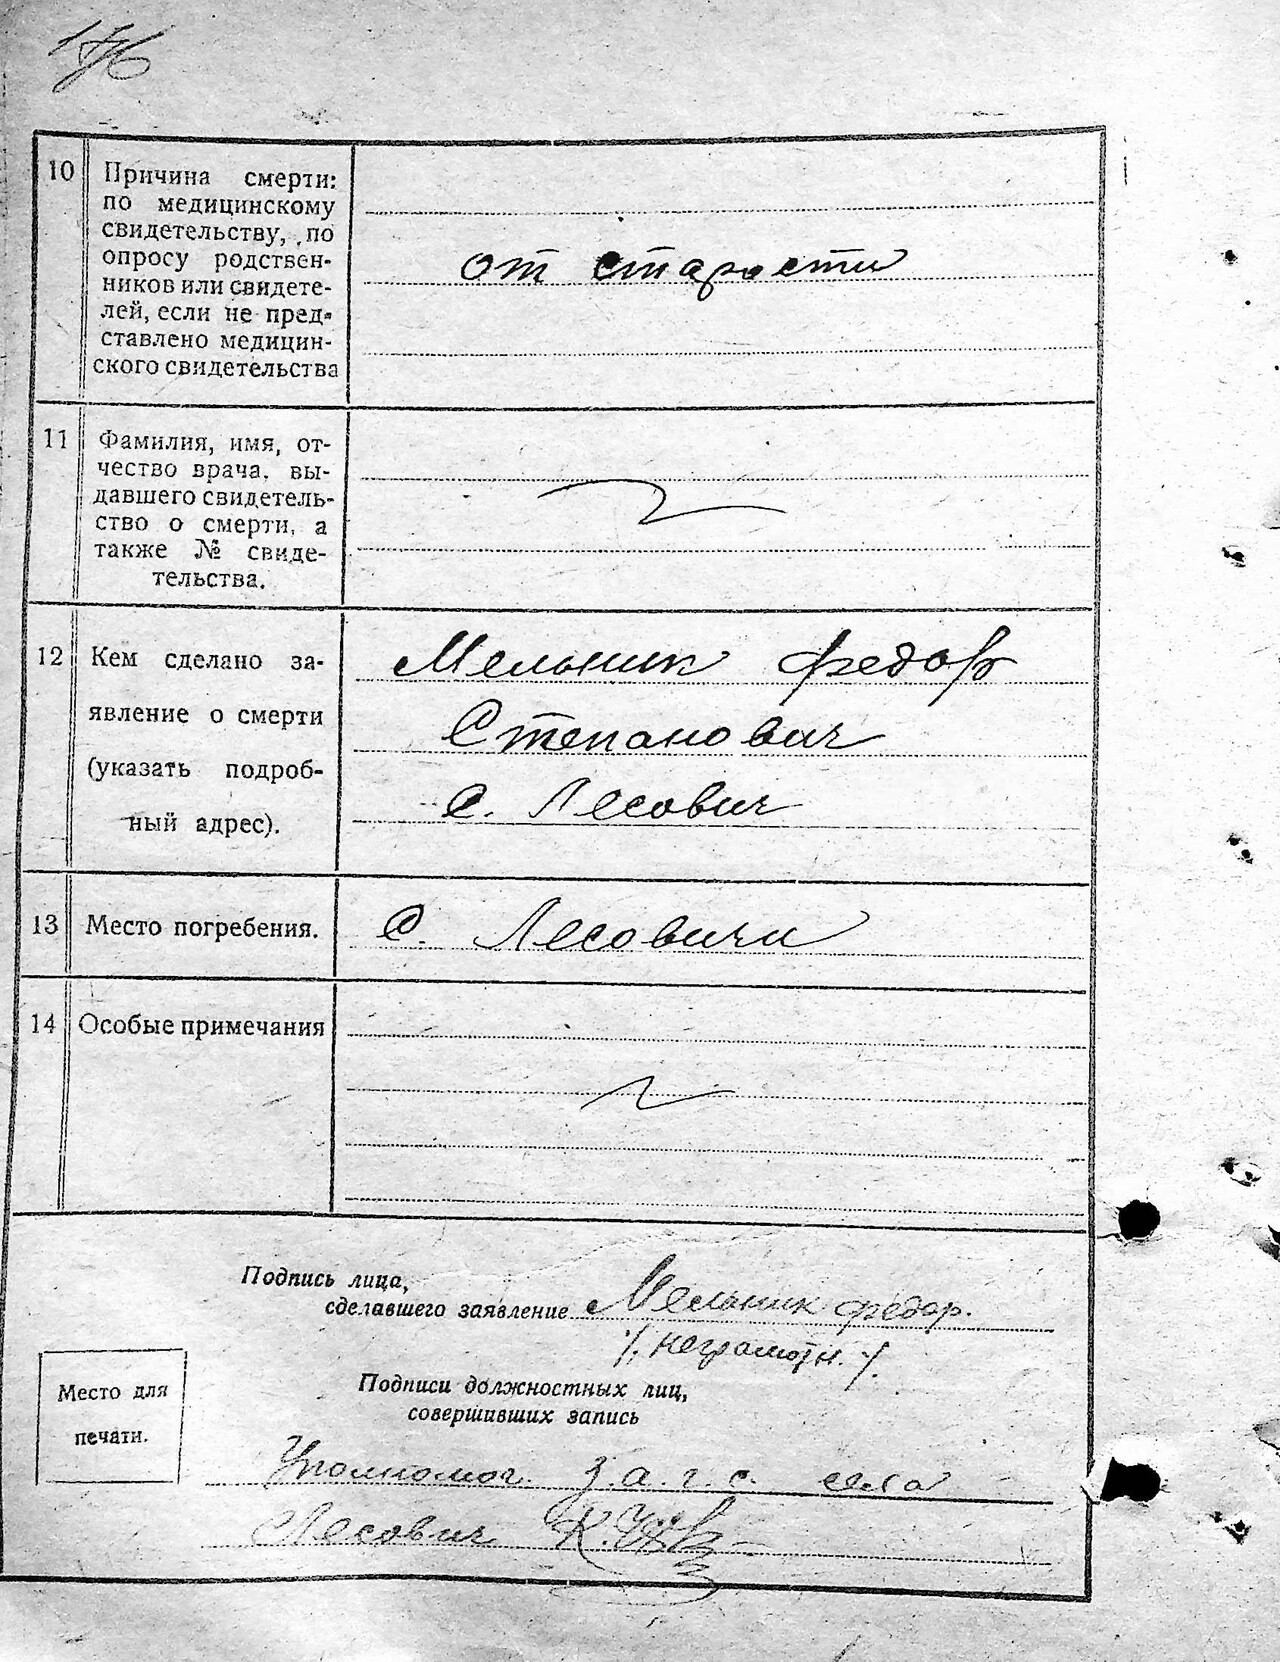 176
10 Причина смерти:
по медицинскому
свидетельству, по
опросу родствен-
ников или свидете-
лей, если не пред-
ставлено медицин-
ского свидетельства
от старости
11 Фамилия, имя, от-
чество врача, вы-
давшего свидетель-
ство о смерти, а
также № свиде-
тельства.
12 Кем сделано за-
явление о смерти
(указать подроб-
ный адрес).
Мельник Федор
Степанович
с. Лесович
13 Место погребения.
с. Лесовичи
14 Особые примечания
Подпись лица,
сделавшего заявление Мельник Федор.
/. неграмотн. /.
Место для
печати.
Подписи должностных лиц,
совершивших запись
Уполномог. з.а.г.с. села
Лесович